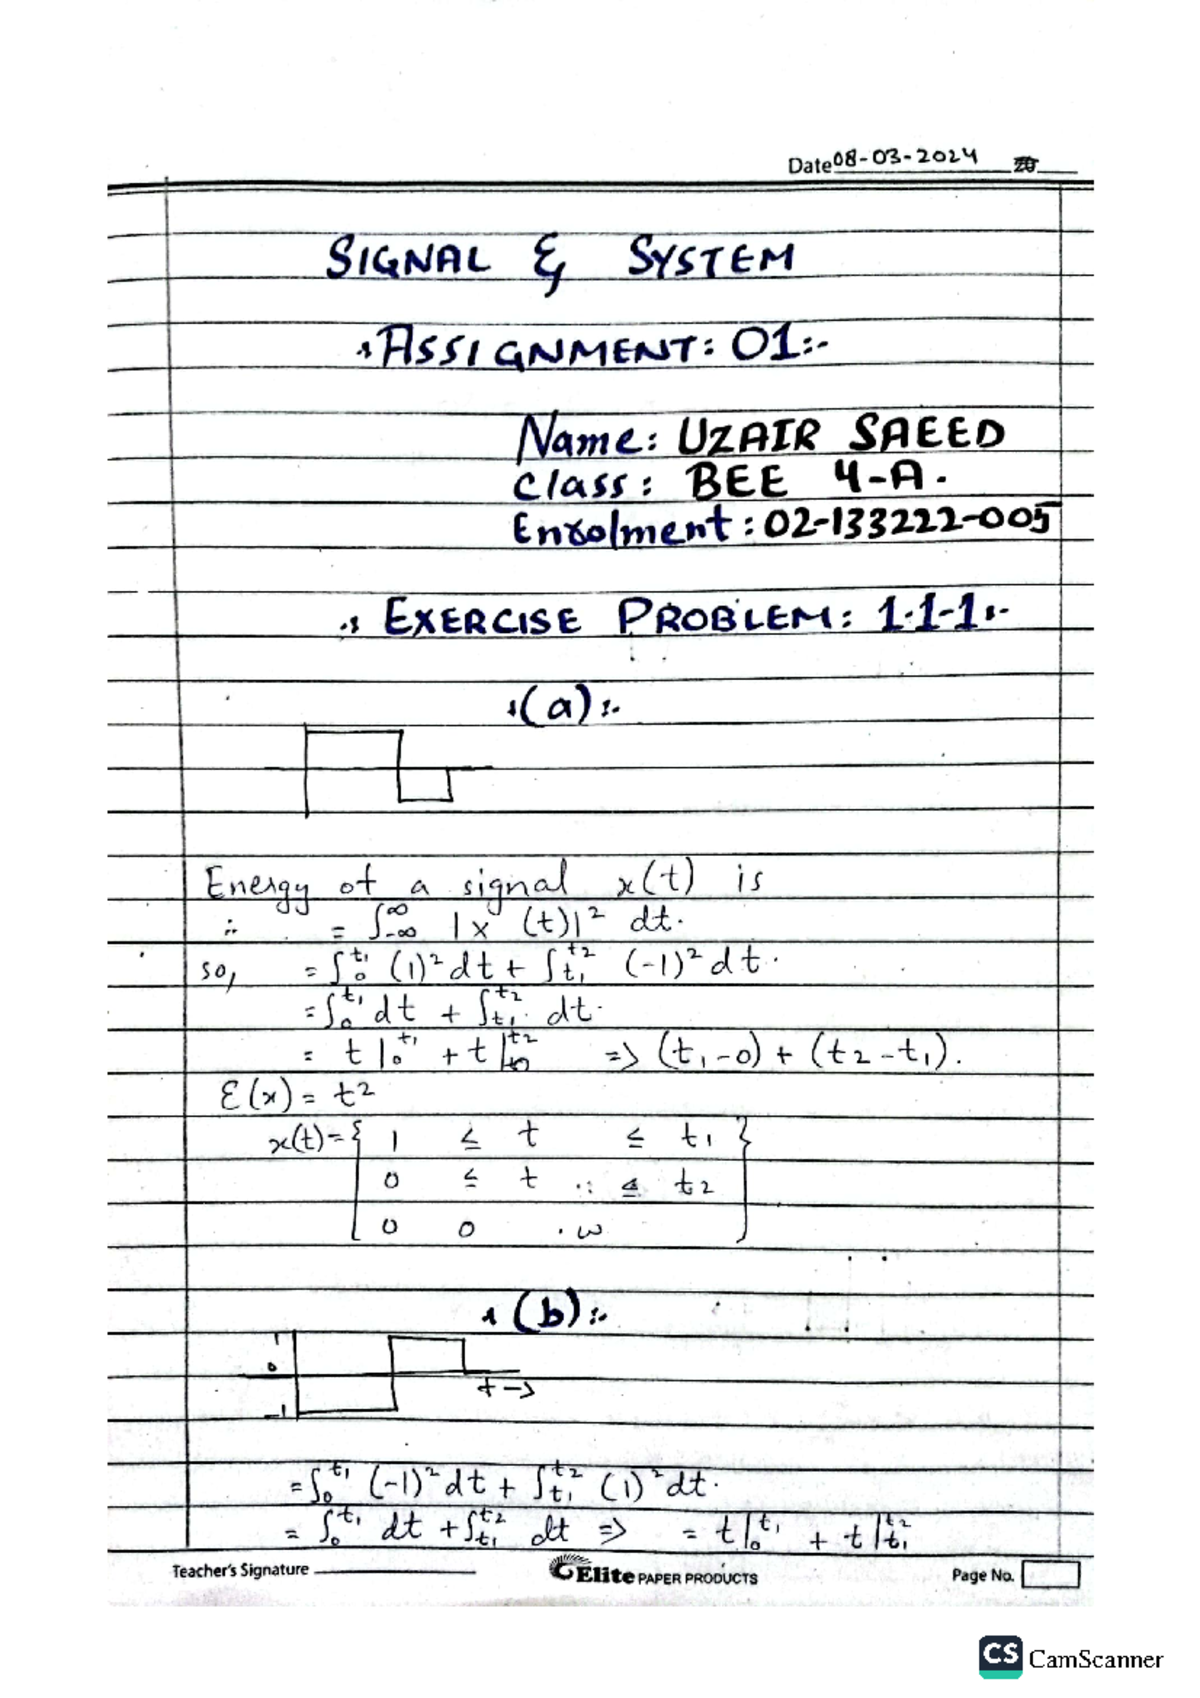 Date 08-03-2024 20
SIGNAL & SYSTEM
ASSIGNMENT: 01:-
Name: UZAIR SAEED
Class: BEE 4-A.
Enrolment: 02-133222-005
EXERCISE PROBLEM: 1.1-1:-
(a):-
Energy of a signal x(t) is
∴ = ∫-∞^∞ |x (t)|² dt.
so, = ∫0^t1 (1)² dt + ∫t1^t2 (-1)² dt.
= ∫0^t1 dt + ∫t1^t2 dt.
= t|0^t1 + t|^t2 => (t1-0) + (t2-t1).
E(x) = t2
x(t) = { 1 ≤ t ≤ t1 }
0 ≤ t ≤ t2
0 0 . w
(b):-
1
0
t ->
-1
= ∫0^t1 (-1)² dt + ∫t1^t2 (1)² dt.
= ∫0^t1 dt + ∫t1^t2 dt => = t|0^t1 + t|t1^t2
Teacher's Signature
Elite PAPER PRODUCTS
Page No.
CS CamScanner